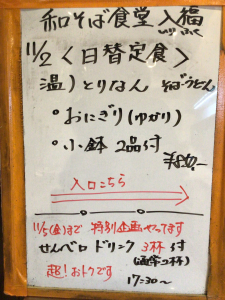 和そば食堂 入福
いりふく
11/2 〈日替定食〉
温)とりなん そば・うどん
・おにぎり(ゆかり)
・小鉢 2品付
¥880,-
入口こちら
11/5(金)まで 特別企画やってます
せんベロ ドリンク 3杯 付
(通常2杯)
超!おトクです 17:30〜